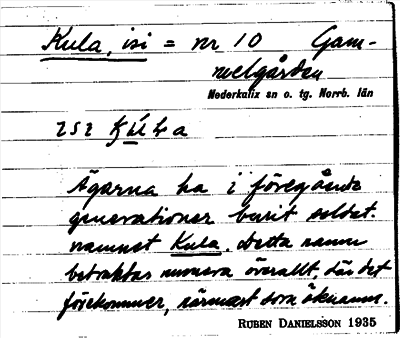 Kula, isi = nr 10 Gam-
melgården
Nederkalix sn o. tg. Norrb. län
Ägarna ha i föregående
generationer burit soldat-
namnet Kula. Detta namn
betraktas numera överallt, där det
förekommer, närmast som öknamn.
RUBEN DANIELSSON 1935